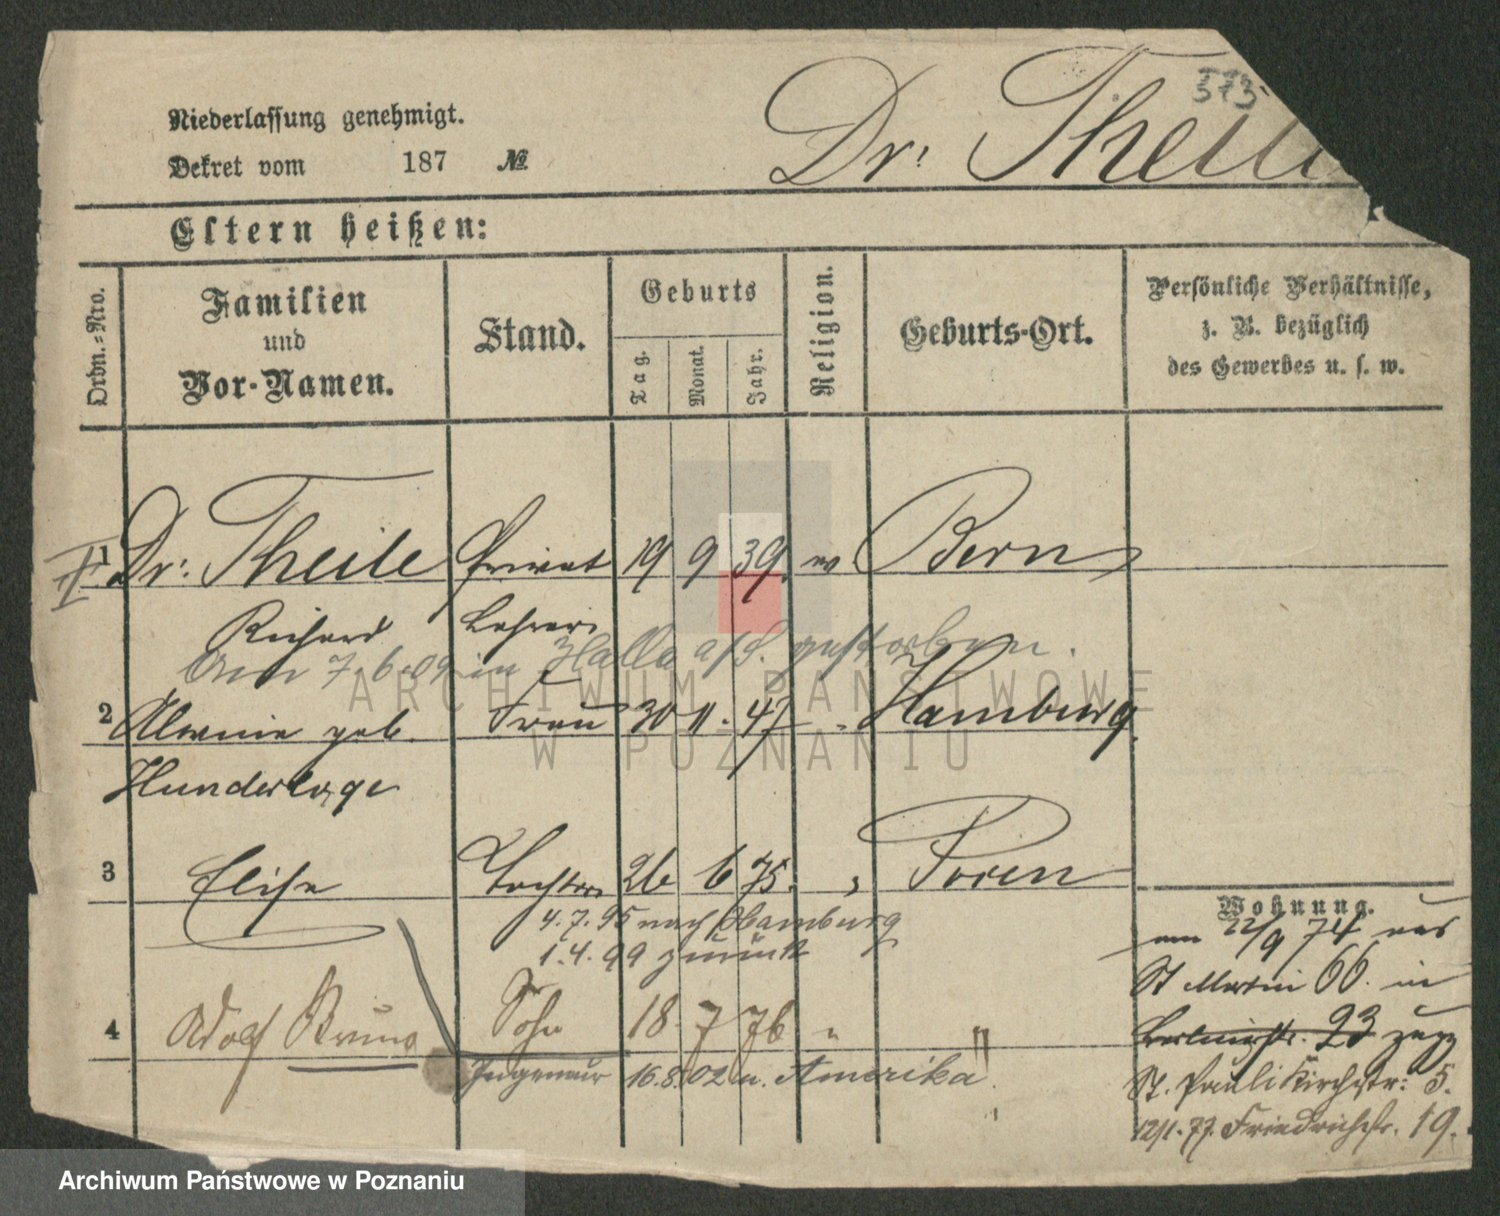 373
Niederlassung genehmigt.
Dr. Theile
Dekret vom 187 №
Eltern heißen:
Ordn.-Nro.
Familien
und
Vor-Namen.
Stand.
Geburts
Tag.
Monat.
Jahr.
Religion.
Geburts-Ort.
Persönliche Verhältnisse,
z. B. bezüglich
des Gewerbes u. s. w.
1 Dr: Theile Privat 19 9 39. Bern
Richard Lehrer
Am 7.6.09 in Halle a/S. gestorben.
2 geb. Frau 30 11. 47 Hamburg
Hunderlage
3 Elise Tochter 26 6 75. " Posen
4.7.95 nach Hamburg
1.4.99 zurück
4 Adolf Bruno Sohn 18 7 76 " "
Ingenieur 16.8.02 n. Amerika
Wohnung.
am 22/9 74 aus
St Martin 66. in
Berlinerstr. 23 zugz
St. Paulikirchstr: 5.
12/1.77. Friedrichstr. 19.
ARCHIWUM PAŃSTWOWE
W POZNANIU
Archiwum Państwowe w Poznaniu